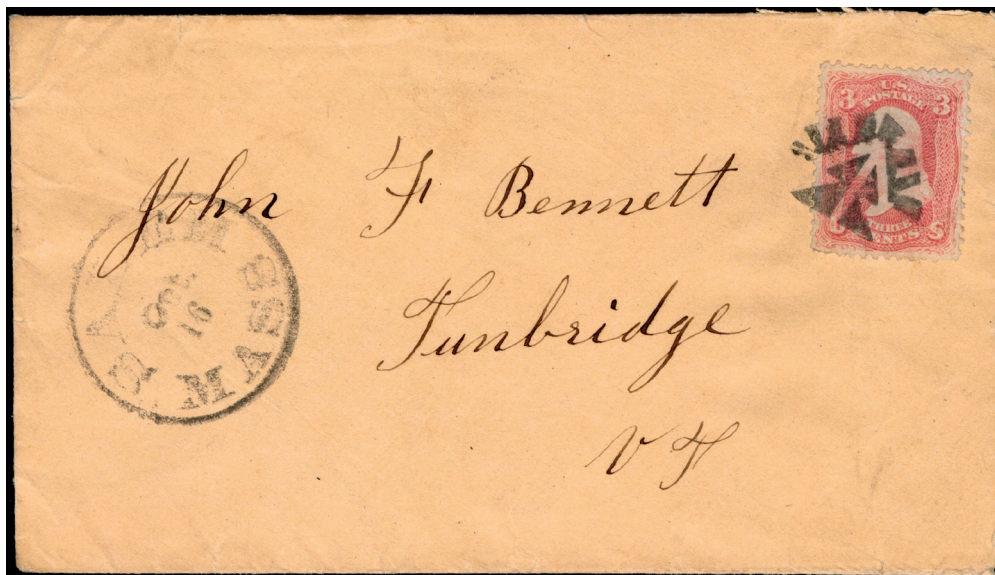 U.S.
POSTAGE
3 3
THREE
CENTS
John F Bennett
Tunbridge
Vt
MASS
16